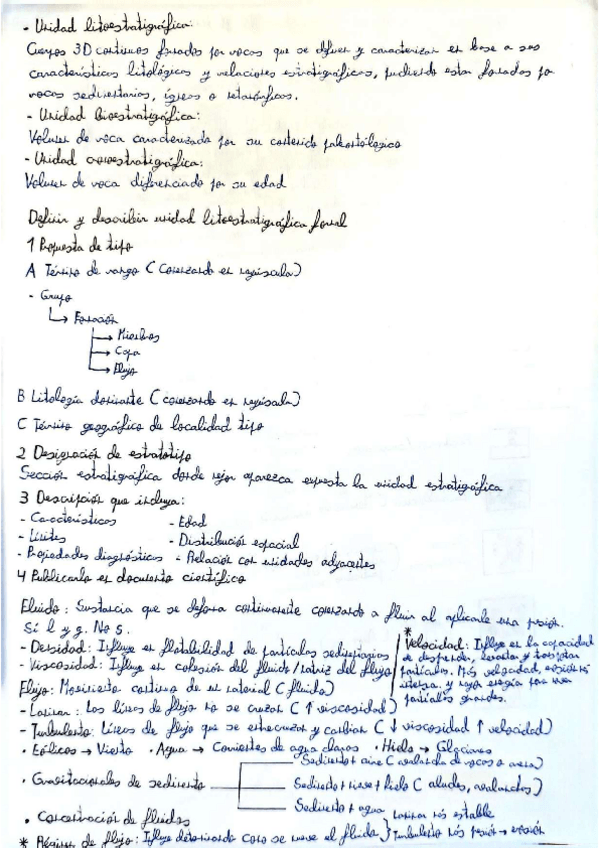 - Unidad litoestratigráfica:
Cuerpos 3D continuos formados por rocas que se definen y caracterizan en base a sus
características litológicas y relaciones estratigráficas, pudiendo estar formados por
rocas sedimentarias, ígneas o metamórficas.
- Unidad bioestratigráfica:
Volumen de roca caracterizada por su contenido paleontológico
- Unidad cronoestratigráfica:
Volumen de roca diferenciado por su edad
Definir y describir unidad litoestratigráfica formal
1 Propuesta de tipo
A Término de rango (comenzando en mayúscula)
- Grupo
Formación
Miembros
Capa
Flujo
B Litología dominante (comenzando en mayúscula)
C Término geográfico de localidad tipo
2 Designación de estratotipo
Sección estratigráfica donde mejor aparezca expuesta la unidad estratigráfica
3 Descripción que incluya:
- Características - Edad
- Límites - Distribución espacial
- Propiedades diagnósticas - Relación con unidades adyacentes
4 Publicarlo en documento científico
Fluido: Sustancia que se deforma continuamente comenzando a fluir al aplicarle una presión.
Sí l y g. No s.
- Densidad: Influye en flotabilidad de partículas
- Viscosidad: Influye en cohesión del fluido/matriz del flujo
* Velocidad: Influye en la capacidad
de desprender, levantar y transportar
partículas. Más velocidad, erosión más
intensa y mayor energía para mover
partículas grandes.
Flujo: Movimiento continuo de un material (fluido)
- Laminar: Las líneas de flujo no se cruzan (↑ viscosidad)
- Turbulento: Líneas de flujo que se entrecruzan y cambian (↓ viscosidad ↑ velocidad)
• Eólicos → Viento • Agua → Corrientes de agua claras • Hielo → Glaciares
• Gravitacionales de sedimento
Sedimento + aire (avalancha de rocas o arena)
Sedimento + nieve + hielo (aludes, avalanchas)
Sedimento + agua
• Concentración de fluidos
* Régimen de flujo: Influye determinando como se mueve el fluido } Laminar más estable
Turbulento más presión → erosión